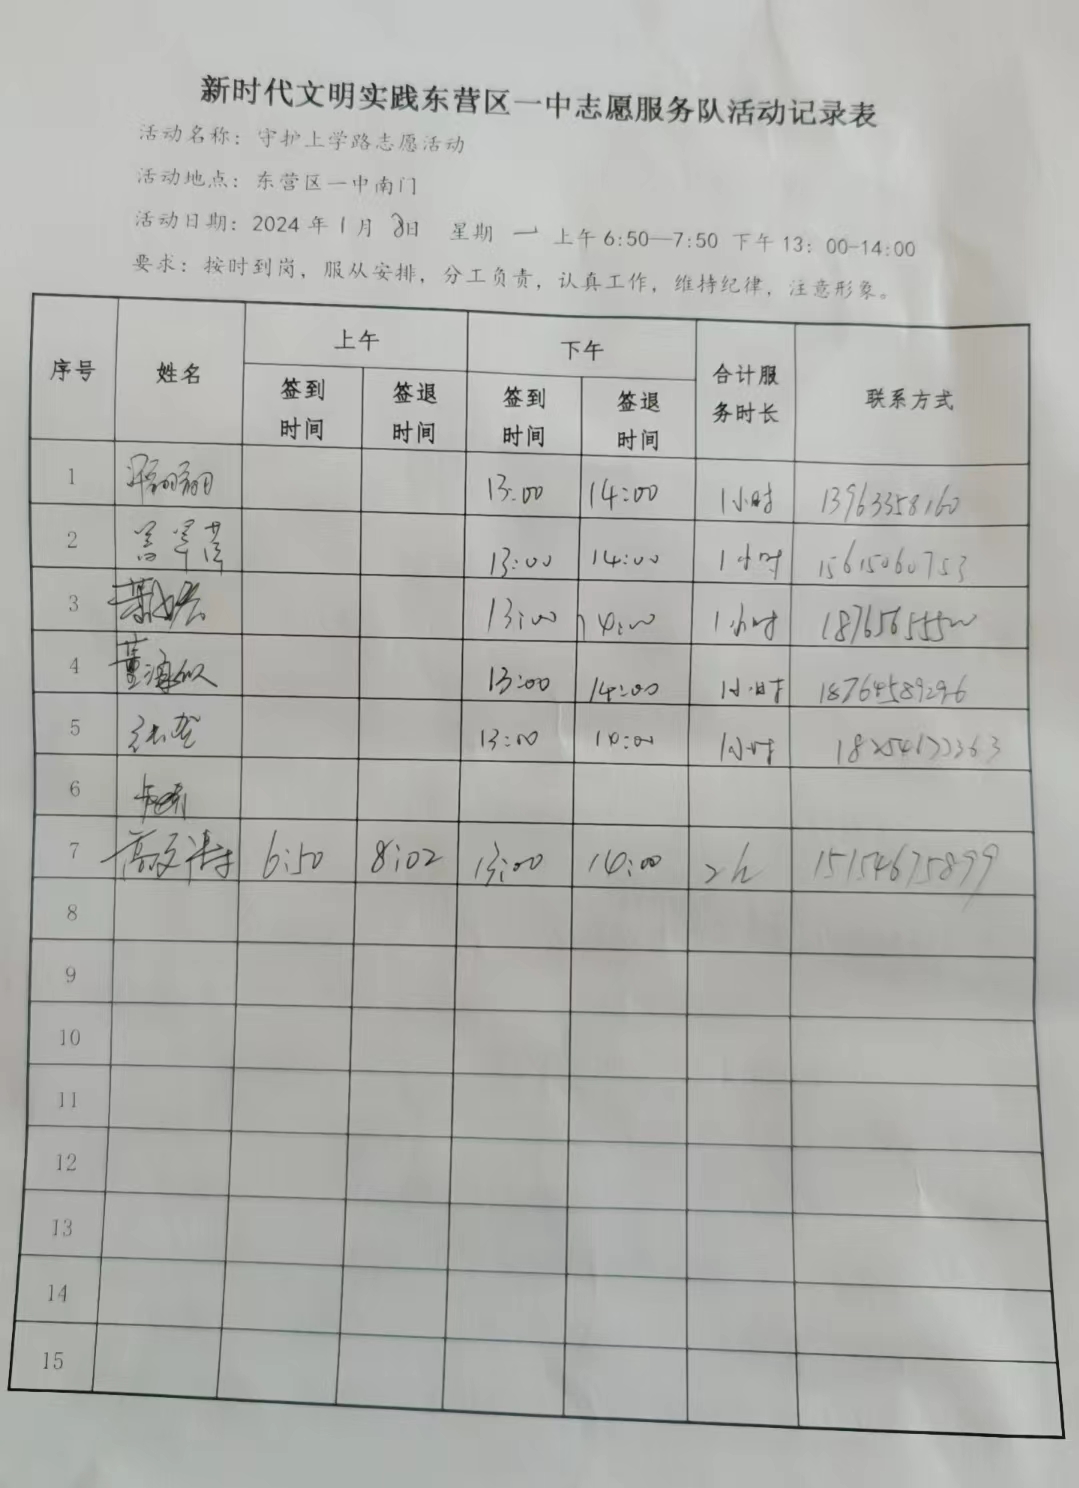 新时代文明实践东营区一中志愿服务队活动记录表
活动名称：守护上学路志愿活动
活动地点：东营区一中南门
活动日期：2024年1月8日 星期一 上午6:50—7:50 下午13：00-14:00
要求：按时到岗，服从安排，分工负责，认真工作，维持纪律，注意形象。
序号 姓名 上午 下午 合计服务时长 联系方式
签到时间 签退时间 签到时间 签退时间
1 13:00 14:00 1小时 13963358160
2 13:00 14:00 1小时 15615060753
3 13:00 14:00 1小时
4 董 13:00 14:00 1小时 18764589296
5 13:00 14:00 1小时
6
7 高 6:50 8:02 13:00 14:00 2h 15154675899
8
9
10
11
12
13
14
15